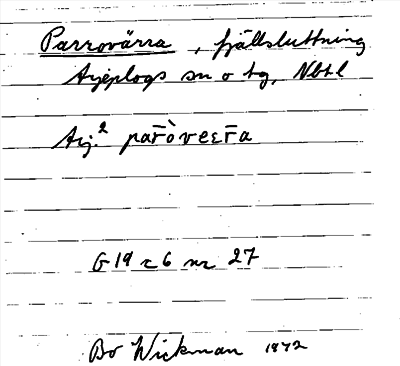 Parrovärra, fjällsluttning
Arjeplogs sn o tg, Nbtl
Arj.² par̄òvεεr̄a
G 19 c 6 nr 27
Bo Wickman 1972